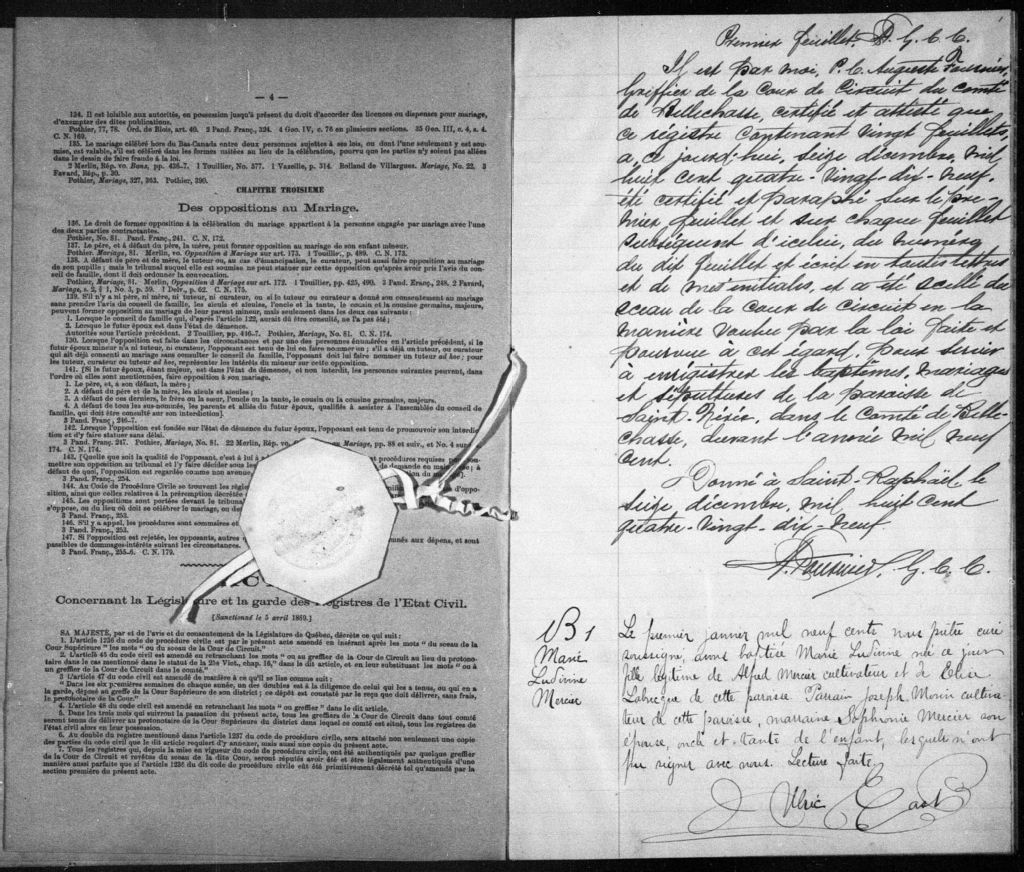 — 4 —
134. Il est loisible aux autorités, en possession jusqu'à présent du droit d'accorder des licences ou dispenses pour mariage,
d'exempter des dites publications.
Pothier, 77, 78. Ord. de Blois, art. 40. 2 Pand. Franç., 324. 4 Geo. IV, c. 76 en plusieurs sections. 35 Geo. III, c. 4, s. 4.
C. N. 169.
135. Le mariage célébré hors du Bas-Canada entre deux personnes sujettes à ses lois, ou dont l'une seulement y est sou-
mise, est valable, s'il est célébré dans les formes usitées au lieu de la célébration, pourvu que les parties n'y soient pas allées
dans le dessin de faire fraude à la loi.
2 Merlin, Rép. vo. Bans, pp. 436-7. 1 Touillier, No. 577. 1 Vazeille, p. 314. Rolland de Villargues. Mariage, No. 22. 3
Favard, Rép., p. 30.
Pothier, Mariage, 327, 363. Pothier, 390.
CHAPITRE TROISIEME
Des oppositions au Mariage.
136. Le droit de former opposition à la célébration du mariage appartient à la personne engagée par mariage avec l'une
des deux parties contractantes.
Pothier, No. 81. Pand. Franç., 241. C. N. 172.
137. Le père, et à défaut du père, la mère, peut former opposition au mariage de son enfant mineur.
Pothier. Mariage, 81. Merlin, vo. Opposition à Mariage sur art. 173. 1 Touillier, p. 489. C. N. 173.
138. A défaut de père et de mère, le tuteur ou, au cas d'émancipation, le curateur, peut aussi faire opposition au mariage
de son pupille ; mais le tribunal auquel elle est soumise ne peut statuer sur cette opposition qu'après avoir pris l'avis du con-
seil de famille, dont il doit ordonner la convocation.
Pothier, Mariage, 81. Merlin, Opposition à Mariage sur art. 172. 1 Touillier, pp. 425, 490. 3 Pand. Franç., 248. 2 Favard,
Mariage, s. 2, § 1, No. 3, p. 59. 1 Delv., p. 62. C. N. 175.
139. S'il n'y a ni père, ni mère, ni tuteur, ni curateur, ou si le tuteur ou curateur a donné son consentement au mariage
sans prendre l'avis du conseil de famille, les aïeuls et aïeules, l'oncle et la tante, le cousin et la cousine germains, majeurs,
peuvent former opposition au mariage de leur parent mineur, mais seulement dans les deux cas suivants :
1. Lorsque le conseil de famille qui, d'après l'article 122, aurait dû être consulté, ne l'a pas été ;
2. Lorsque le futur époux est dans l'état de démence.
Autorités sous l'article précédent. 2 Touillier, pp. 446-7. Pothier, Mariage, No. 81. C. N. 174.
130. Lorsque l'opposition est faite dans les circonstances et par une des personnes énumérées en l'article précédent, si le
futur époux mineur n'a ni tuteur, ni curateur, l'opposant est tenu de lui en faire nommer un ; s'il a déjà un tuteur, ou curateur
qui ait déjà consenti au mariage sans consulter le conseil de famille, l'opposant doit lui faire nommer un tuteur ad hoc ; pour
les tuteur, curateur ou tuteur ad hoc, représenter les intérêts du mineur sur cette opposition.
141. [Si le futur époux, étant majeur, est dans l'état de démence, et non interdit, les personnes suivantes peuvent, dans
l'ordre où elles sont mentionnées, faire opposition à son mariage.
1. Le père, et, à son défaut, la mère ;
2. A défaut du père et de la mère, les aïeuls et aïeules ;
3. A défaut de ces derniers, le frère ou la sœur, l'oncle ou la tante, le cousin ou la cousine germains, majeurs.
4. A défaut de tous les sus-nommés, les parents et alliés du futur époux, qualifiés à assister à l'assemblée du conseil de
famille, qui doit être consulté sur son interdiction].
3 Pand. Franç., 246-7.
142. Lorsque l'opposition est fondée sur l'état de démence du futur époux, l'opposant est tenu de promouvoir son interdic-
tion et d'y faire statuer sans délai.
3 Pand. Franç. 247. Pothier, Mariage, No. 81. 22 Merlin, Rép. vo. Mariage, pp. 88 et suiv., et No. 4 sur
174. C. N. 174.
143. [Quelle que soit la qualité de l'opposant, c'est à lui à procédures requises pour sou-
mettre son opposition au tribunal et l'y faire décider sous les demande en main ; à
défaut de quoi, l'opposition est regardée comme non avenue,
3 Pand. Franç., 254.
144. Au Code de Procédure Civile se trouvent les règles d'oppo-
sition, ainsi que celles relatives à la préremption décrétée
145. Les oppositions sont portées devant le tribunal
s'oppose, ou du lieu où doit se célébrer le mariage, ou de
3 Pand. Franç., 253.
146. S'il y a appel, les procédures sont sommaires et
3 Pand. Franç., 253.
147. Si l'opposition est rejetée, les opposants, autres mnés aux dépens, et sont
passibles de dommages-intérêts suivant les circonstances.
3 Pand. Franç., 255-6. C. N. 179.
Concernant la Législature et la garde des Registres de l'Etat Civil.
[Sanctionné le 5 avril 1869.]
SA MAJESTÉ, par et de l'avis et du consentement de la Législature de Québec, décrète ce qui suit :
1. L'article 1236 du code de procédure civile est par le présent acte amendé en insérant après les mots " du sceau de la
Cour Supérieure " les mots " ou du sceau de la Cour de Circuit."
2. L'article 45 du code civil est amendé en retranchant les mots " ou au greffier de la Cour de Circuit au lieu du protono-
taire dans le cas mentionné dans le statut de la 25e Vict., chap. 16," dans le dit article, et en leur substituant les mots " ou à
un greffier de la Cour de Circuit dans le comté."
3 L'article 47 du code civil est amendé de manière à ce qu'il se lise comme suit :
" Dans les six premières semaines de chaque année, un des doubles est à la diligence de celui qui les a tenus, ou qui en a
la garde, déposé au greffe de la Cour Supérieure de son district ; ce dépôt est constaté par le reçu que doit délivrer, sans frais,
le protonotaire de la Cour."
4. L'article 48 du code civil est amendé en retranchant les mots " ou greffier " dans le dit article.
5. Dans les trois mois qui suivront la passation du présent acte, tous les greffiers de la Cour de Circuit dans tout comté
seront tenus de délivrer au protonotaire de la Cour Supérieure du district dans lequel ce comté est situé, tous les registres de
l'état civil alors en leur possession.
6. Au double du registre mentionné dans l'article 1237 du code de procédure civile, sera attaché non seulement une copie
des parties du code civil que le dit article requiert d'y annexer, mais aussi une copie du présent acte.
7. Tous les registres qui, depuis la mise en vigueur du code de procédure civile, ont été authentiqués par quelque greffier
de la Cour de Circuit et revêtus du sceau de la dite Cour, seront réputés avoir été et être légalement authentiqués d'une
manière aussi parfaite que si l'article 1236 du dit code de procédure civile eût été primitivement décrété tel qu'amendé par la
section première du présent acte.
1
Premier feuillet. A. F. G. C. C.
Il est par moi, P. C. Auguste Fournier,
Greffier de la Cour de Circuit du comté
de Bellechasse, certifié et attesté que
ce régistre contenant vingt feuillets,
a, ce jourd'hui, seize décembre, mil
huit cent quatre-vingt-dix-neuf,
été certifié et paraphé sur le pre-
mier feuillet et sur chaque feuillet
subséquent d'icelui, du numéro
du dit feuillet et écrit en toutes lettres
et de mes initiales, et a été scellé du
sceau de la cour de circuit en la
manière voulue par la loi faite et
pourvue à cet égard, pour servir
à enrégistrer les baptêmes, mariages
et sépultures de la paroisse de
Saint-Nérée, dans le Comté de Belle-
chasse, durant l'année mil neuf
cent.
Donné à Saint-Raphaël, le
seize décembre, mil huit cent
quatre-vingt-dix-neuf.
A. Fournier, G. C. C.
B 1
Marie
Ludivine
Mercier
Le premier janvier mil neuf cents nous prêtre curé
soussigné, avons baptisé Marie Ludivine née ce jour
fille légitime de Alfred Mercier cultivateur et de Elise
Labrecque de cette paroisse. Parrain Joseph Morin cultiva-
teur de cette paroisse, marraine Sophronie Mercier son
épouse, oncle et tante de l'enfant, lesquels n'ont
pu signer avec nous. Lecture faite.
J Ulric Cast